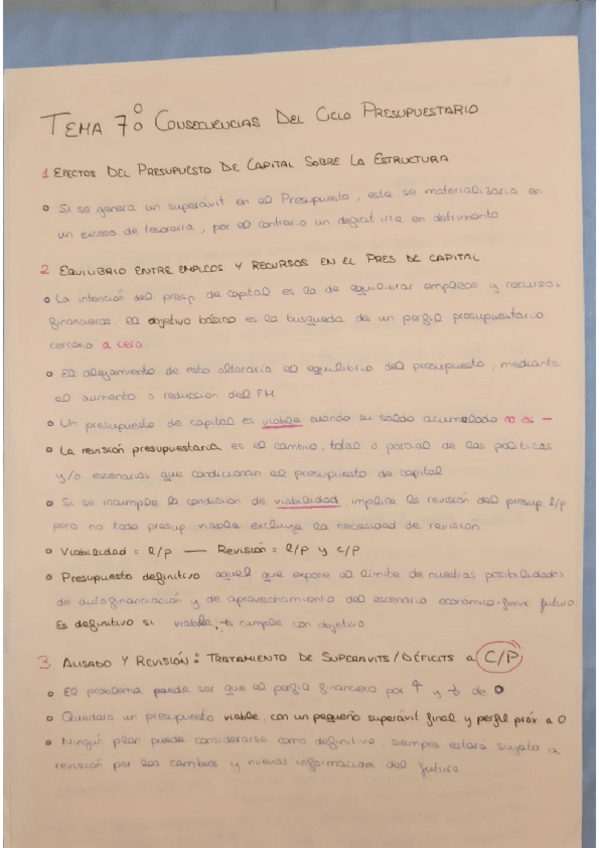 TEMA 7: CONSECUENCIAS DEL CICLO PRESUPUESTARIO
1 EFECTOS DEL PRESUPUESTO DE CAPITAL SOBRE LA ESTRUCTURA
Si se genera un superávit en el Presupuesto, este se materializaria en
un exceso de tesoreria, por el contrario un deficit iria en detrimento
2 EQUILIBRIO ENTRE EMPLEOS Y RECURSOS EN EL PRES DE CAPITAL
La intención del presp. de capital es la de equilibrar empleos y recursos
financieros el objetivo básico es la busqueda de un perfil presupuestario
cercano a cero
El alejamiento de esto alteraria el equilibrio del presupuesto, mediante
el aumento o reducción del FM
Un presupuesto de capital es viable cuando su saldo acumulado no es -
La revisión presupuestaria es el cambio, total o parcial de las políticas
y/o escenarios que condicionan el presupuesto de capital
Si se incumple la condicion de viabilidad implica la revisión del presup l/p
pero no todo presup viable excluye la necesidad de revisión
Viabilidad = l/p — Revisión = l/p y c/p
Presupuesto definitivo aquel que expone el límite de nuestras posibilidades
de autofinanciación y de aprovechamiento del escenario económico-finve futuro.
Es definitivo si viable, cumple con objetivo
3 ALISADO Y REVISIÓN: TRATAMIENTO DE SUPERAVITS/DÉFICITS A C/P
El problema puede ser que el perfil financiero por ↑ y ↓ de 0
Quedara un presupuesto viable, con un pequeño superávit final y perfil próx a 0
Ningún plan puede considerarse como definitivo, siempre estará sujeto a
revisión por los cambios y nuevas informacion del futuro